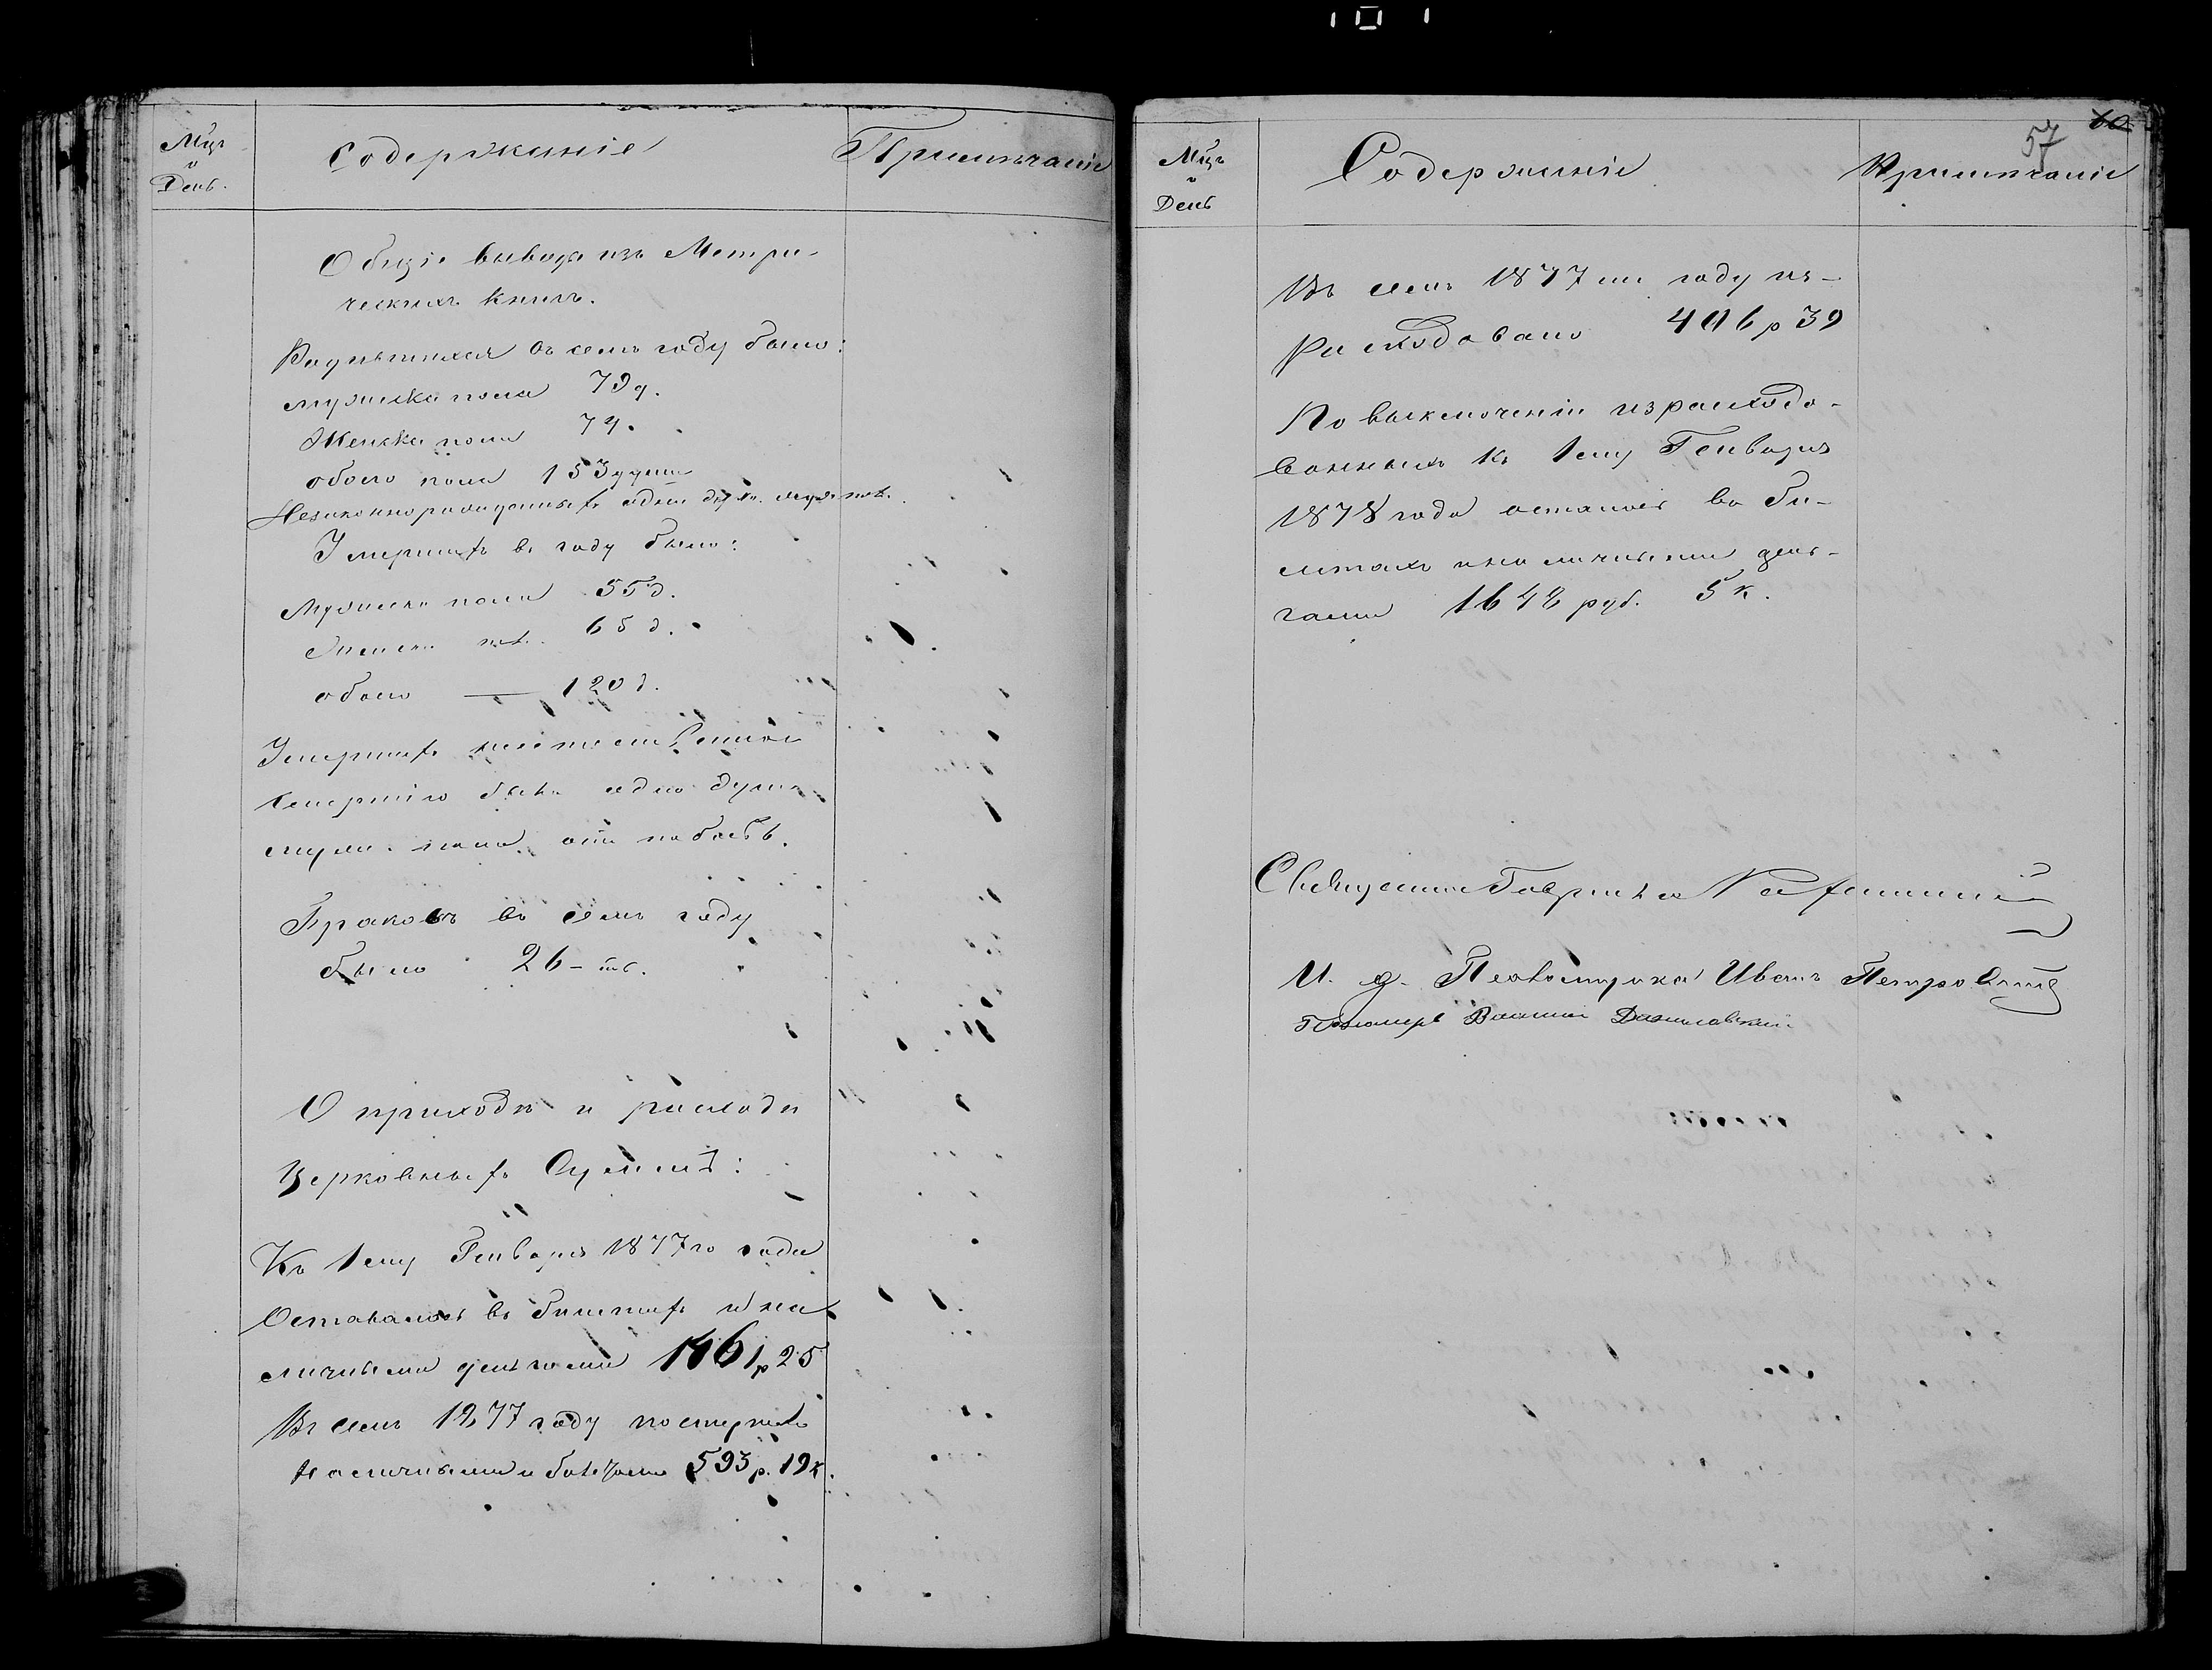 Мцъ
и
День.
Содержаніе
Примѣчаніе
Общіе вывода изъ Метри-
ческихъ книгъ.
Родившихся въ семъ году было:
мужеска пола 79 д.
Женска пола 74.
обоего пола 153 души
Незаконнорожденныхъ одна душ. муж. пол.
Умершихъ въ году было:
Мужеска пола 55 д.
Женска пол. 65 д.
обоего — 120 д.
Умершихъ
смертію была одна душа
муж. пола отъ
Браковъ въ семъ году
было 26-ть.
О приходѣ и расходѣ
Церковныхъ Суммъ:
Къ 1ему Генваря 1877го года
Оставалось въ билетахъ и на
личными деньгами 1461 р 25
Въ семъ 1877 году поступило
наличными и билетами 593 р. 19 к.
57
60
Мцъ
и
День
Содержаніе
Примѣчаніе
Въ семъ 1877 мъ году из-
расходовано 406 р 39
По выключеніи израсходо-
ванныхъ къ 1ему Генваря
1878 года осталось въ би-
летахъ и наличными день-
гами 1648 руб. 5 к.
Священникъ Гавріилъ
И. д. Псаломщика Иванъ Петровъ
Пономарь Данилевскій